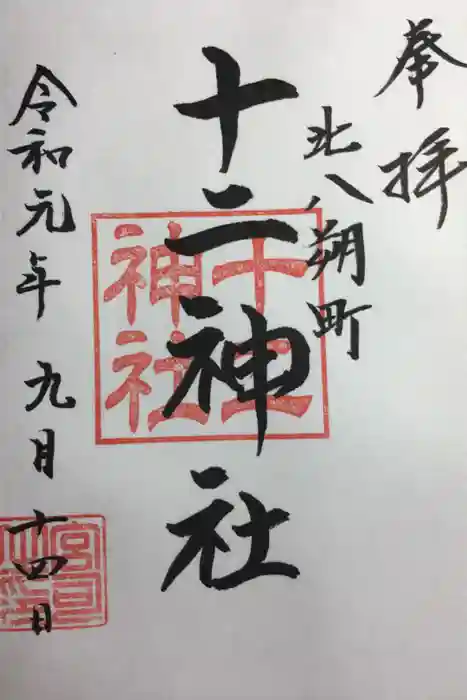 奉拝
北八朔町
十二神社
十二
神社
令和元年九月十四日